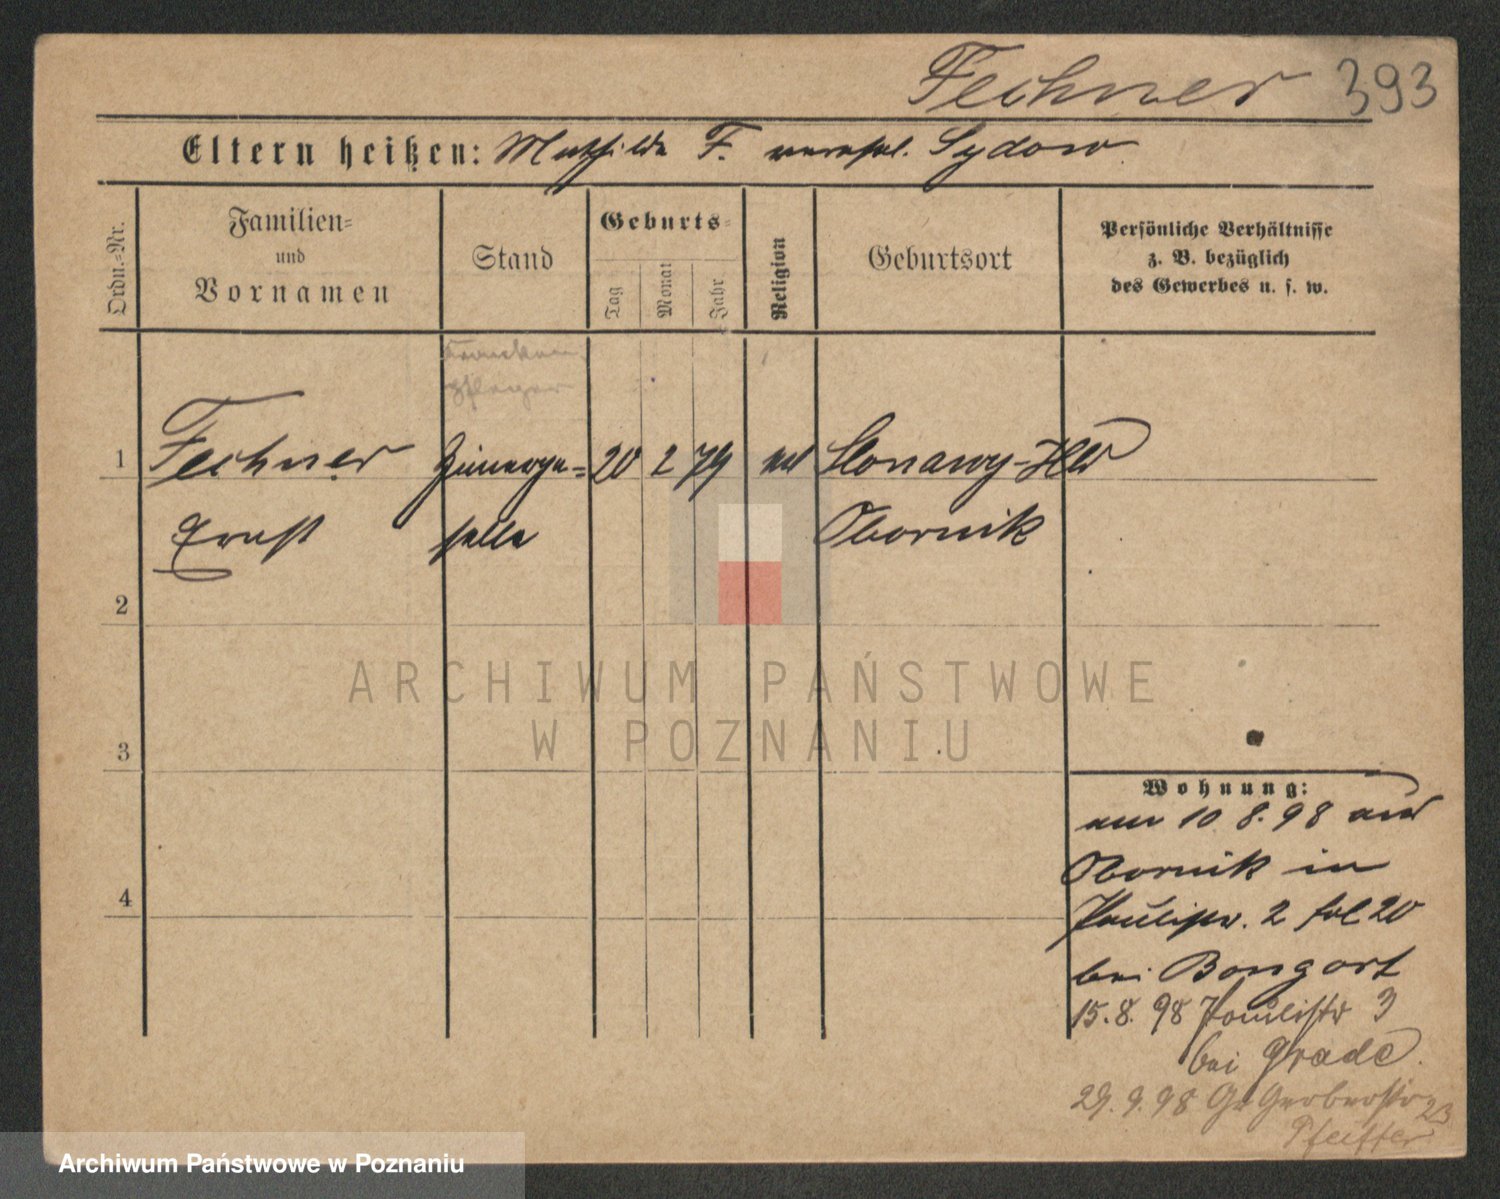 Fechner 393
Eltern heißen: Mathilde F. verehel. Sydow
Ordn.=Nr.
Familien=
und
Vornamen
Stand
Geburts=
Tag
Monat
Jahr
Religion
Geburtsort
Persönliche Verhältnisse
z. B. bezüglich
des Gewerbes u. s. w.
Kranken
pfleger
1 Fechner Zimerge= 20 2 79 Slonawy-Hld
Ernst selle Obornik
2
3
4
ARCHIWUM PAŃSTWOWE
W POZNANIU
Wohnung:
am 10 8. 98 aus
Obornik in
Paulistr. 2 bei
bei Bongart
15. 8. 98 Paulistr 3
bei Grade.
29. 9. 98 Gr Gerberstr 23
Pfeiffer
Archiwum Państwowe w Poznaniu